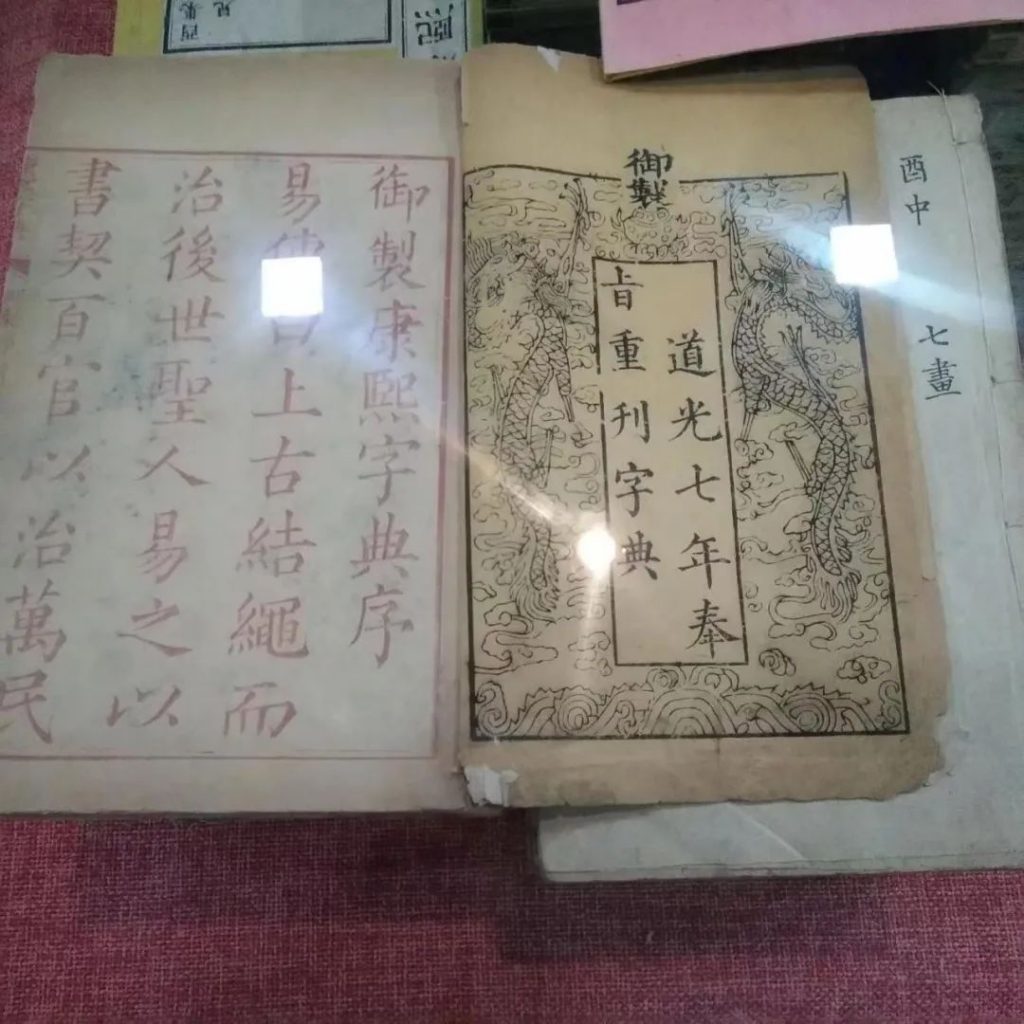 酉中 七畫
御製
道光七年奉
旨重刊字典
御製康熙字典序
易傳曰上古結繩而
治後世聖人易之以
書契百官以治萬民